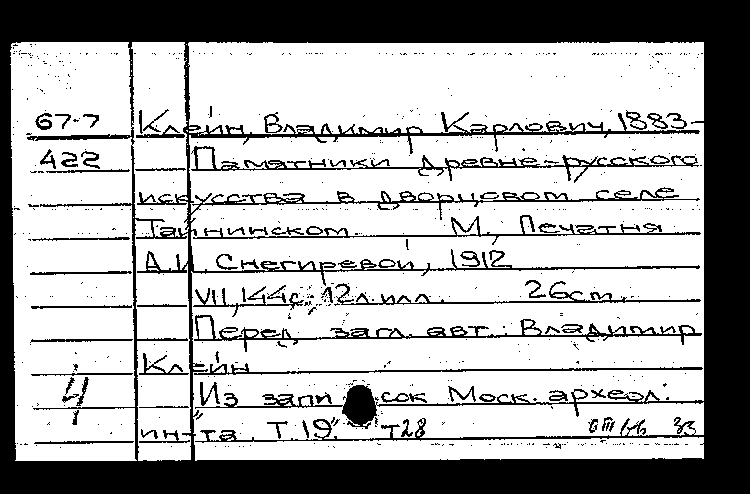 67-7 Клейн, Владимир Карлович, 1883-
422 Памятники древне-русского
искусства в дворцовом селе
Тайнинском. М., Печатня
А.И. Снегиревой, 1912
VII, 144 с., 12 л. илл. 26 cm.
Перед загл. авт.: Владимир
Клейн
4 Из записок Моск. археол.
ин-та. Т. 19". Т28